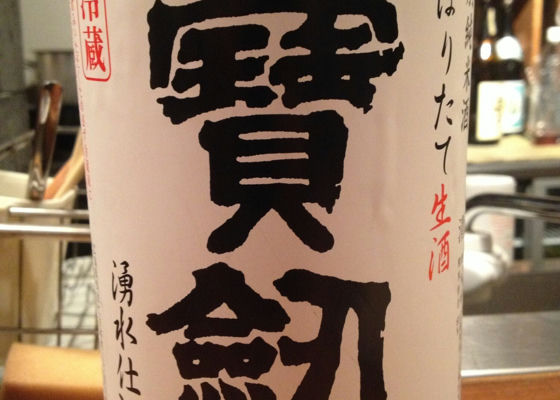 純米酒
ぼりたて生酒
寶劔
冷蔵
湧水仕